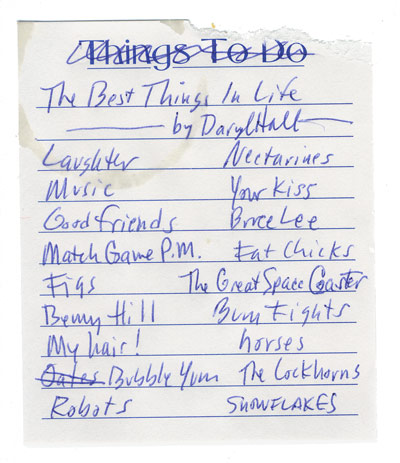 Things To Do
The Best Things In Life
by Daryl Hall
Laughter Nectarines
Music Your Kiss
Good friends Bruce Lee
Match Game P.M. Fat Chicks
Figs The Great Space Coaster
Benny Hill Bum Fights
My hair! horses
Oates Bubbly Yum The Lockhorns
Robots SNOWFLAKES